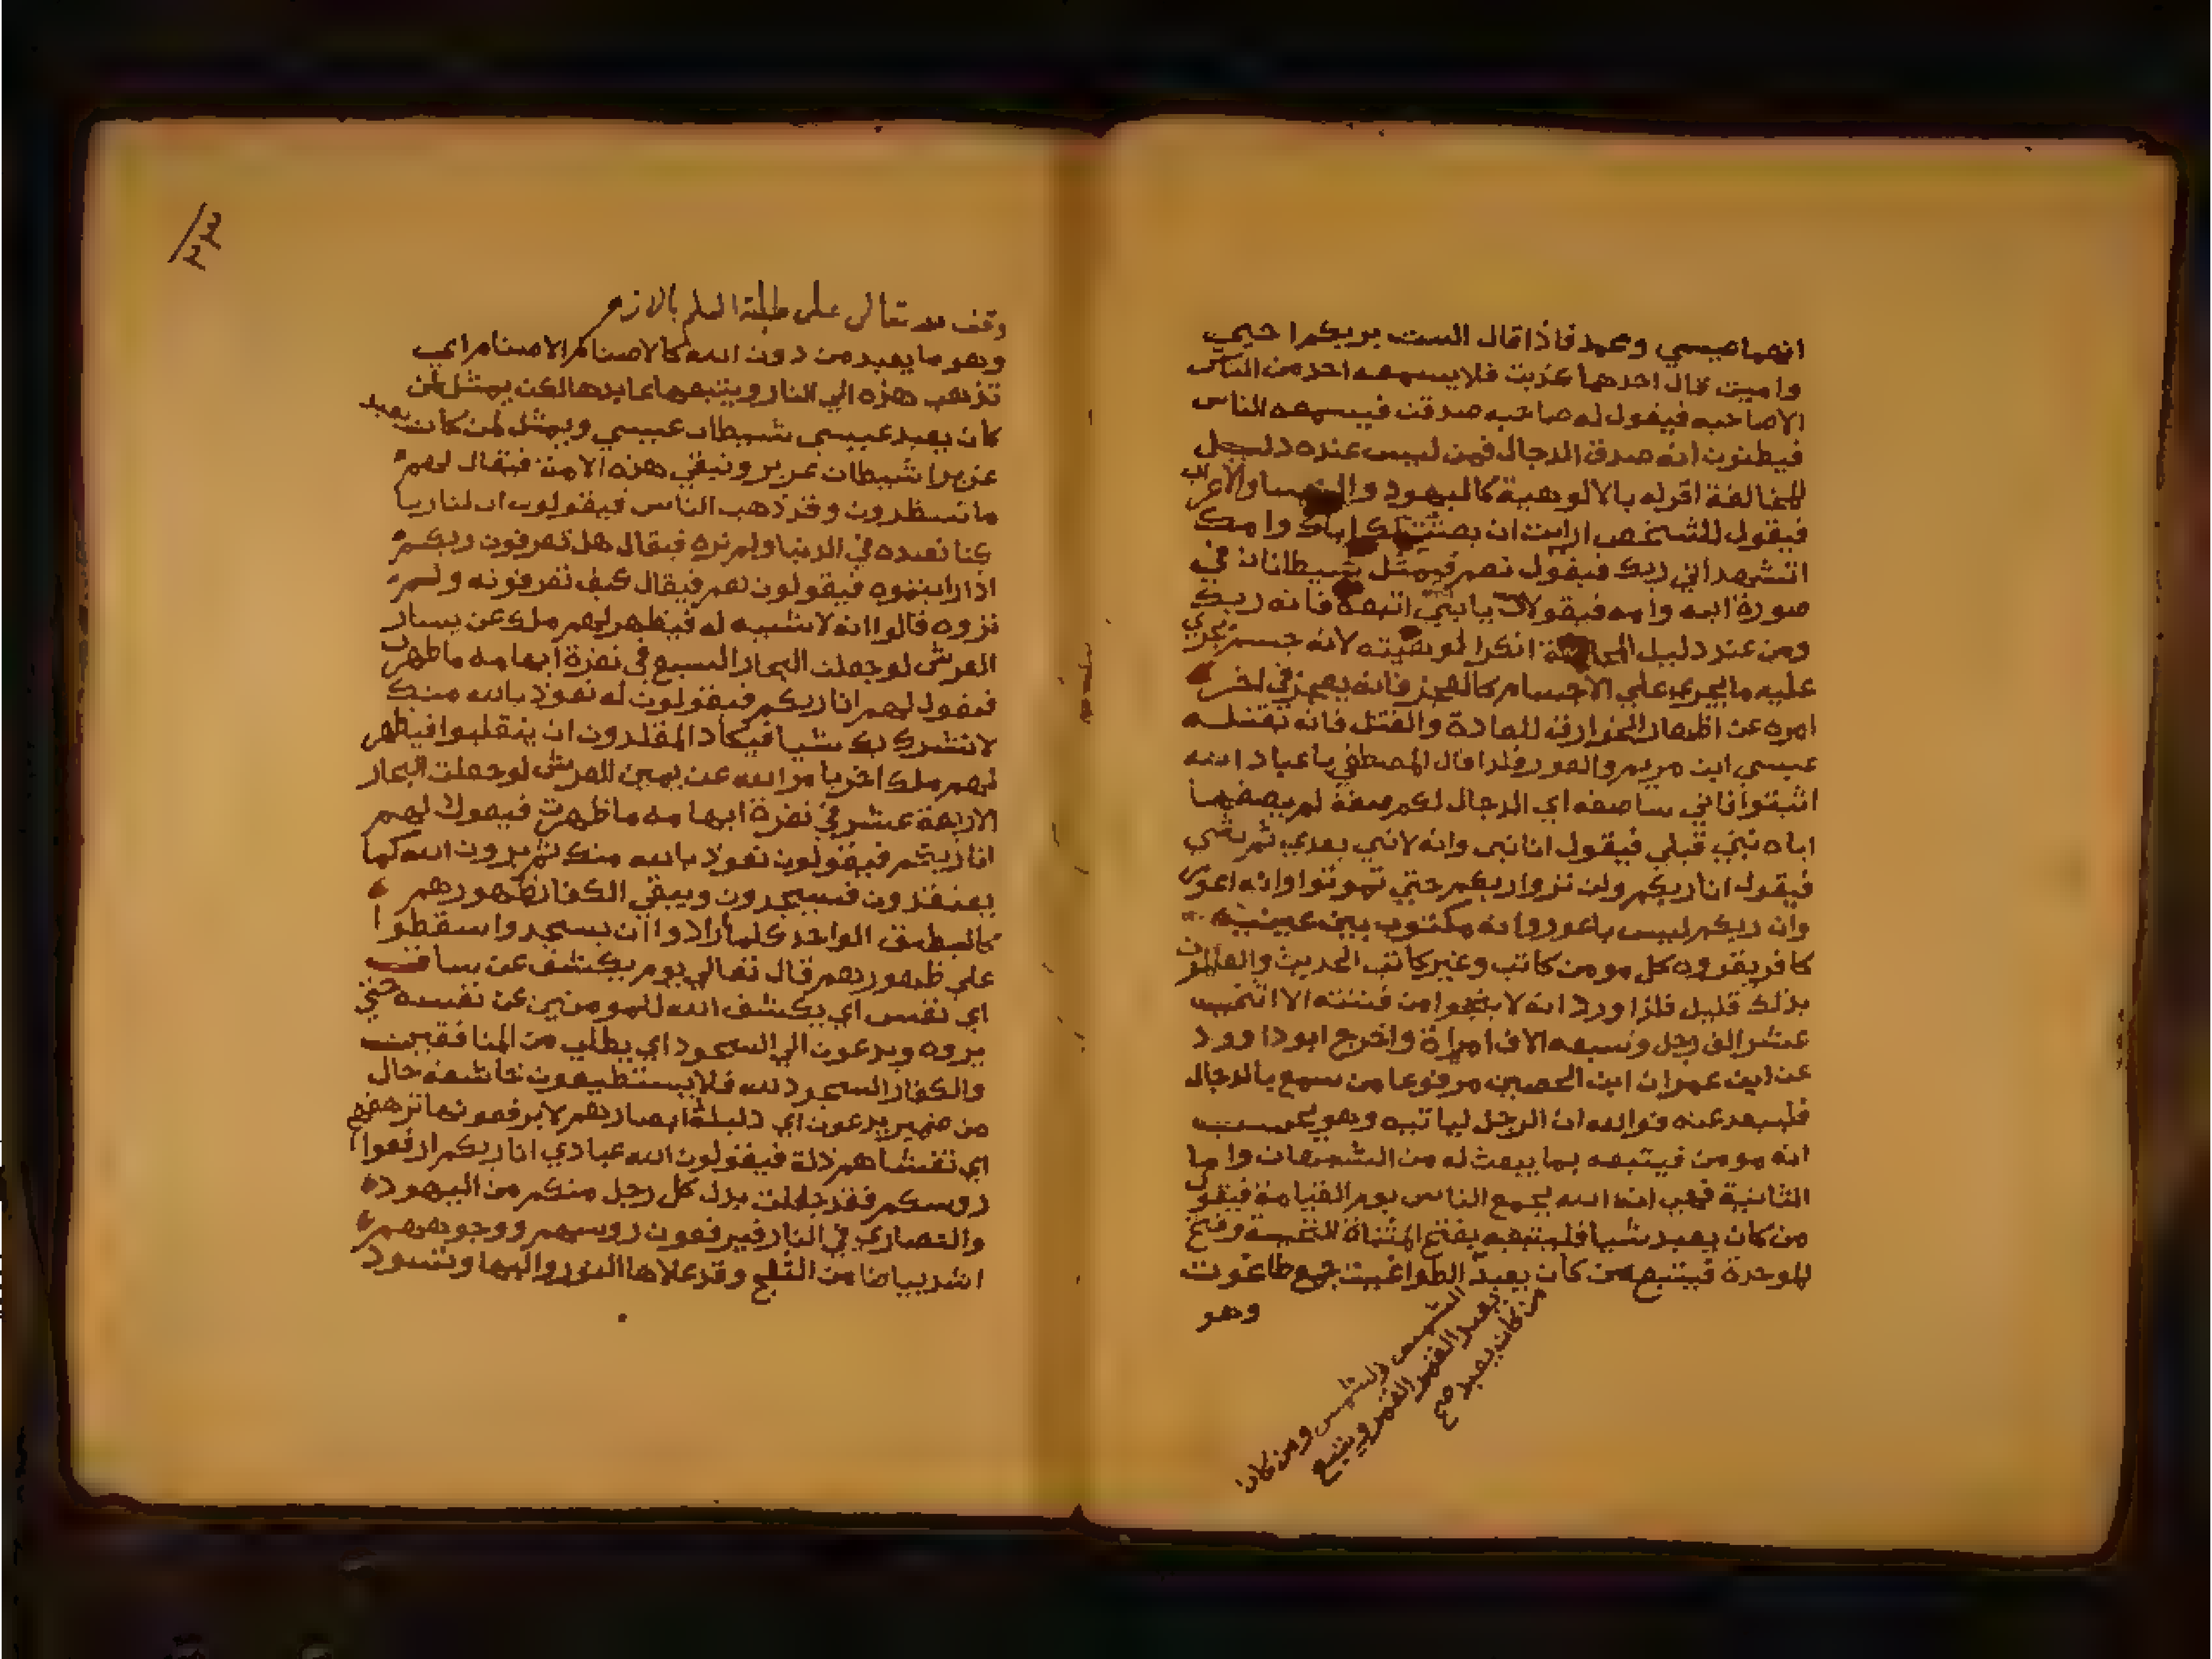 انهما عيسي ومحمد فاذا قال الست بربكم احيي
واميت قال احدهما كذبت فلا يسمعه احد من الناس
الا صاحبه فيقول له صاحبه صدقت فيسمعه الناس
فيظنون انه صدق الدجال فمن ليس عنده دليل
المخالفة اقر له بالالوهية كاليهود والنسا والاعراب
فيقول للشخص ارايت ان بعثت لك اباك وامك
اتشهد اني ربك فيقول نعم فيمثل شيطانان في
صورة ابيه وامه فيقولان يا بني اتبعه فانه ربك
ومن عند دليل المخالفة انكر الوهيته لانه جسم يجري
عليه ما يجري علي الاجسام كالعجز فانه يعجز في اخر
امره عن اظهار الخوارق للعادة والقتل فانه يقتله
عيسي ابن مريم والعور فلذا قال المصطفي يا عباد الله
اثبتوا فاني ساصفه اي الدجال لكم صفة لم يصفها
اياه نبي قبلي فيقول انا نبي وانه لا نبي بعدي ثم يثني
فيقول انا ربكم ولن تروا ربكم حتي تموتوا وانه اعور
وان ربكم ليس باعور وانه مكتوب بين عينيه
كافر يقروه كل مومن كاتب وغير كاتب الحديث والعالمون
بذلك قليل فلذا ورد انه لا ينجوا من فتنته الا اثني
عشر الف رجل وسبعه الاف امراة واخرج ابو داوود
عن ابن عمران ابن الحصين مرفوعا من سمع بالدجال
فليبعد عنه فوالله ان الرجل لياتيه وهو يحسب
انه مومن فيتبعه بما يبعث له من الشبهات واما
الثانية فهي ان الله يجمع الناس يوم القيامة فيقول
من كان يعبد شيا فليتبعه بفتح المثناة التحتية وفتح
الموحدة فيتبع من كان يعبد الطواغيت جمع طاغوت
وهو
من كان يعبد صح
يعبد القمر القمر ويتبع
الشمس الشمس ومن كان
٢٣
وقف لله تعالى على طلبة العلم بالازهر
وهو ما يعبد من دون الله كالاصنام الاصنام اي
تذهب هذه الي النار ويتبعها عابدها لكن يمثل لمن
كان يعبد عيسي شيطان عيسي ويمثل لمن كان يعبد
عزيرا شيطان عزير وتبقي هذه الامة فيقال لهم
ما تنتظرون وقد ذهب الناس فيقولون ان لنا ربا
كنا نعبده في الدنيا ولم نره فيقال هل تعرفون ربكم
اذا رايتموه فيقولون نعم فيقال كيف تعرفونه ولم
تروه قالوا انه لا شبيه له فيظهر لهم ملك عن يسار
العرش لو جعلت البحار السبع في نقرة ابهامه ما ظهرن
فيقول لهم انا ربكم فيقولون له نعوذ بالله منك
لا نشرك بك شيا فيكاد المقلدون ان ينقلبوا فيظهر
لهم ملك اخر بامر الله عن يمين العرش لو جعلت البحار
الاربعة عشر في نقرة ابهامه ما ظهرت فيقول لهم
انا ربكم فيقولون نعوذ بالله منك ثم يرون الله كما
يعتقدون فيسجدون ويبقي الكفار ظهورهم
كالطبق الواحد كلما ارادوا ان يسجدوا سقطوا
علي ظهورهم قال تعالي يوم يكشف عن ساق
اي نفس اي يكشف الله للمومنين عن نفسه حتي
يروه ويدعون الي السجود اي يطلب من المنافقين
والكفار السجود لله فلا يستطيعون خاشعة حال
من ضمير يدعون اي ذليلة ابصارهم لا يرفعونها ترهقهم
اي تغشاهم ذلة فيقولون الله عبادي انا ربكم ارفعوا
روسكم فقد جعلت بدل كل رجل منكم من اليهود
والنصاري في النار فيرفعون روسهم ووجوههم
اشد بياضا من الثلج وقد علاها النور والبها وتسود